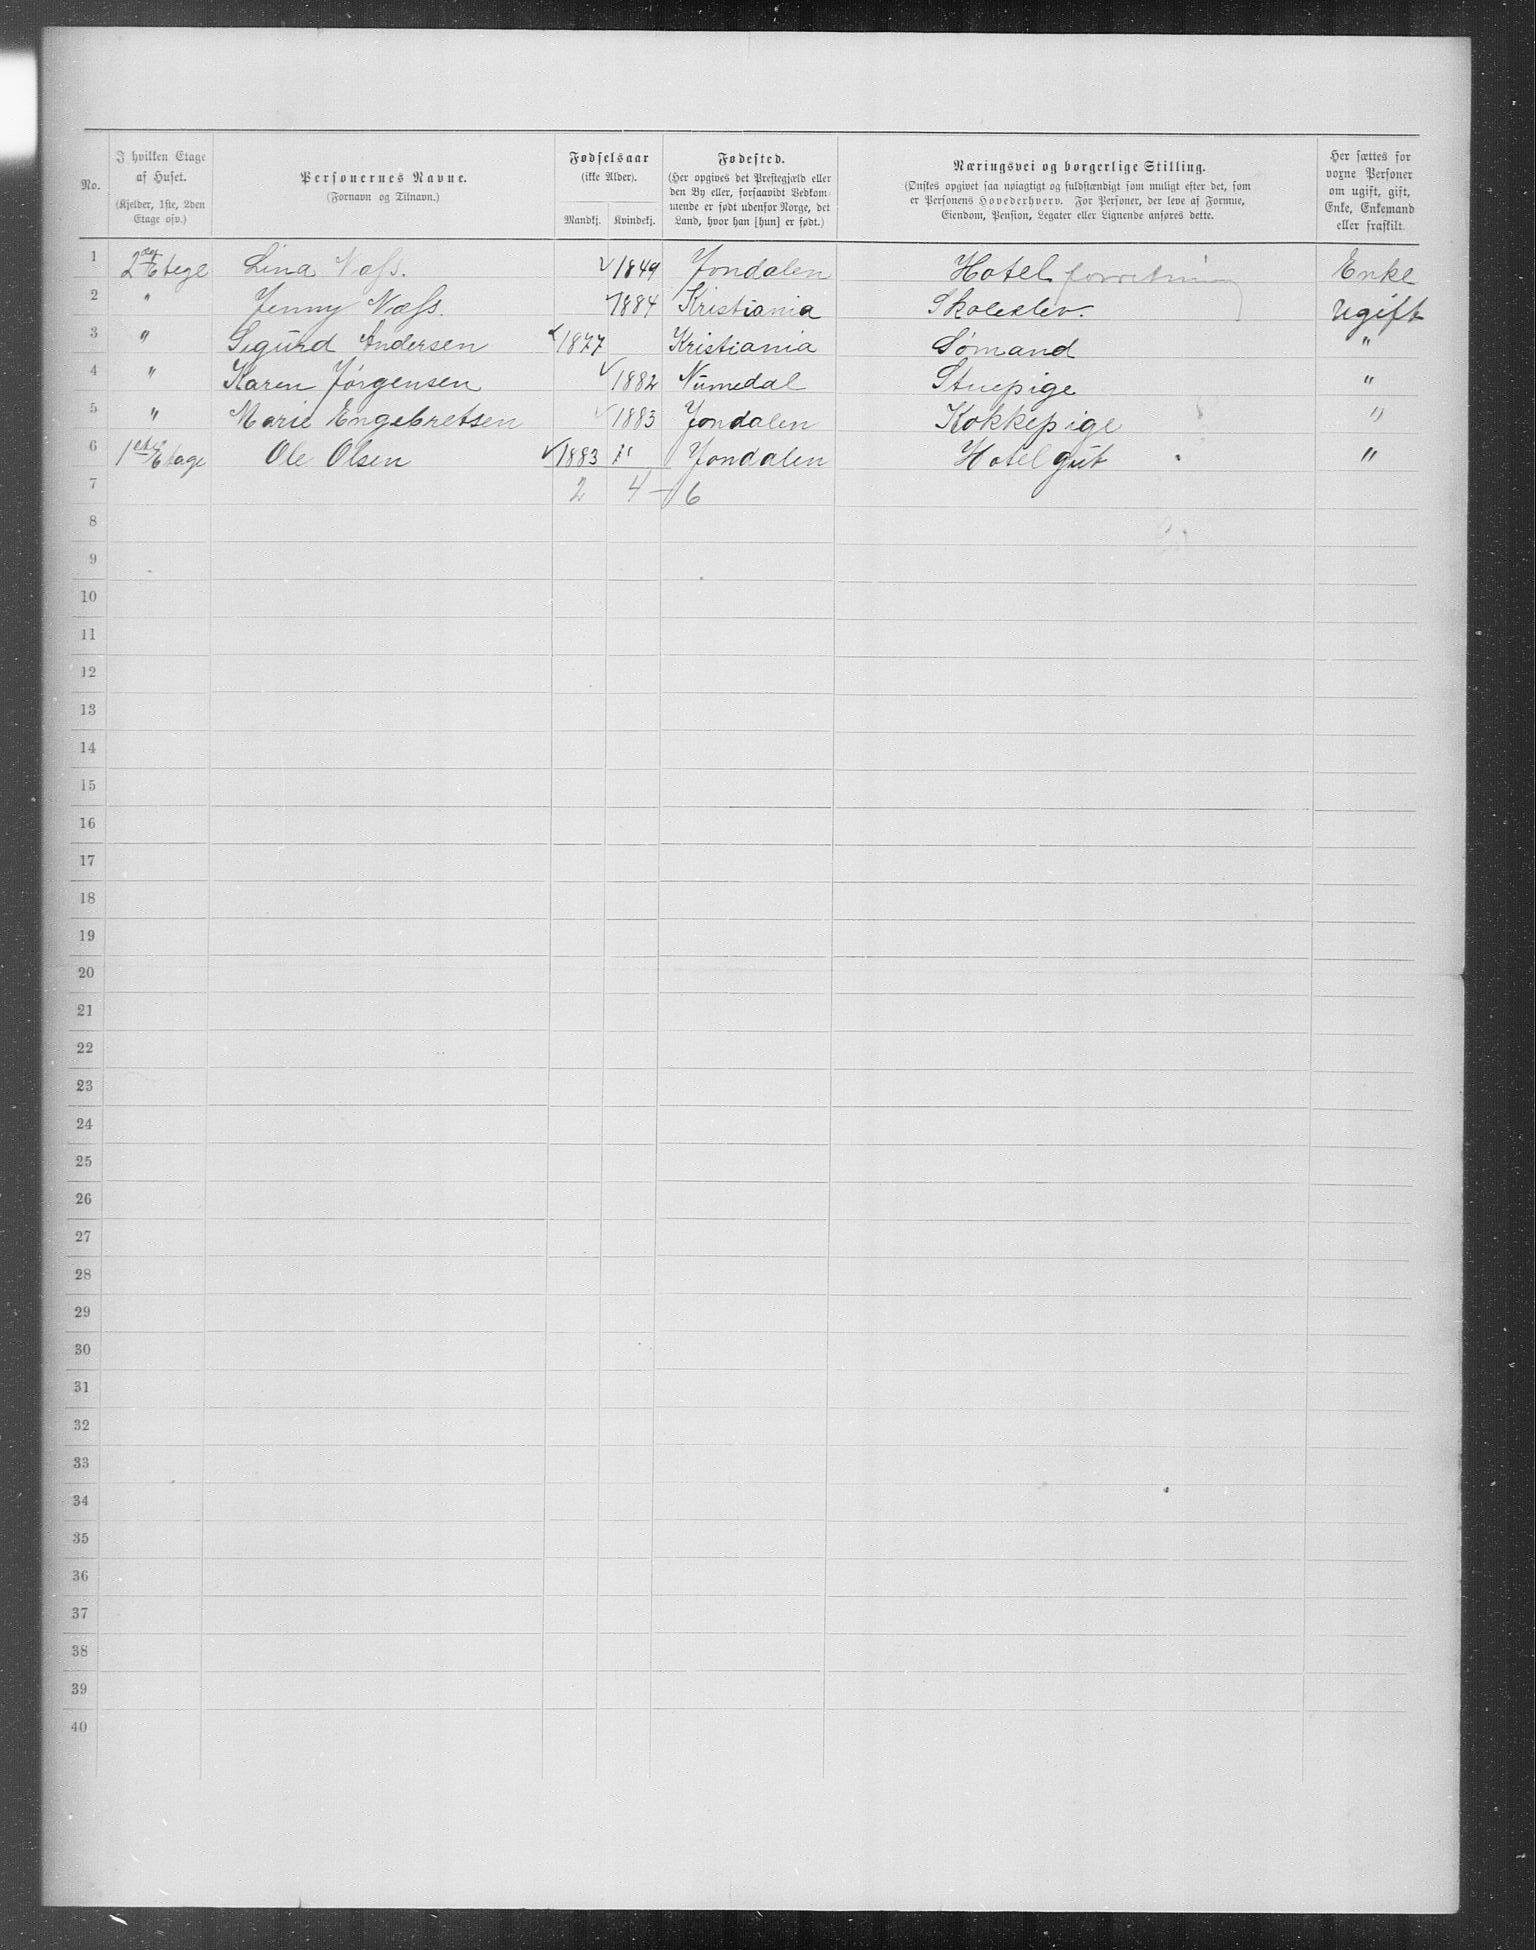 No. | I hvilken Etage af Huset. (Kjelder, 1ste, 2den Etage osv.) | Personernes Navne. (Fornavn og Tilnavn.) | Fødselsaar (ikke Alder). Mandkj. Kvindekj. | Fødested. (Her opgives det Prestegjæld eller den By eller, forsaavidt Vedkommende er født udenfor Norge, det Land, hvor han [hun] er født.) | Næringsvei og borgerlige Stilling. (Ønskes opgivet saa nøiagtigt og fuldstændigt som muligt efter det, som er Personens Hovederhverv. For Personer, der leve af Formue, Eiendom, Pension, Legater eller Lignende anføres dette. | Her sættes for voxne Personer om ugift, gift, Enke, Enkemand eller fraskilt.
1 2den Etege Lina Næss. 1849 Jondalen Hotel forretning Enke
2 " Jenny Næss. 1884 Kristiania Skoleelev. Ugift
3 " Sigurd Andersen 1877 Kristiania Sømand "
4 " Karen Jørgensen 1882 Numedal Stuepige "
5 " Marie Engebretsen 1883 Jondalen Kokkepige "
6 1ste Etage Ole Olsen 1883 " Jondalen Hotelgut "
7 2 4 – 6
8
9
10
11
12
13
14
15
16
17
18
19
20
21
22
23
24
25
26
27
28
29
30
31
32
33
34
35
36
37
38
39
40